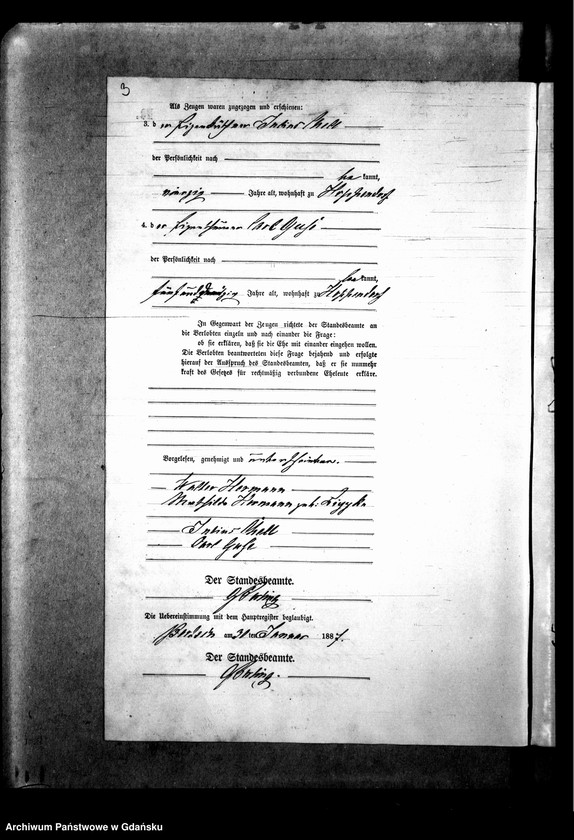 3
Als Zeugen waren zugezogen und erschienen:
3. d er Eigenthümer Julius
der Persönlichkeit nach
be kannt,
vierzig Jahre alt, wohnhaft zu Hoppendorf
4. d er Eigenthümer Carl
der Persönlichkeit nach
be kannt,
fünfunddreißig Jahre alt, wohnhaft zu Hoppendorf
In Gegenwart der Zeugen richtete der Standesbeamte an
die Verlobten einzeln und nach einander die Frage:
ob sie erklären, daß sie die Ehe mit einander eingehen wollen.
Die Verlobten beantworteten diese Frage bejahend und erfolgte
hierauf der Ausspruch des Standesbeamten, daß er sie nunmehr
kraft des Gesetzes für rechtmäßig verbundene Eheleute erkläre.
Vorgelesen, genehmigt und unterschrieben.
Walter Hermann
Mathilde Hermann geb.
Julius
Carl
Der Standesbeamte.
Die Uebereinstimmung mit dem Hauptregister beglaubigt.
am 31 ten Januar 1887.
Der Standesbeamte.
Archiwum Państwowe w Gdańsku